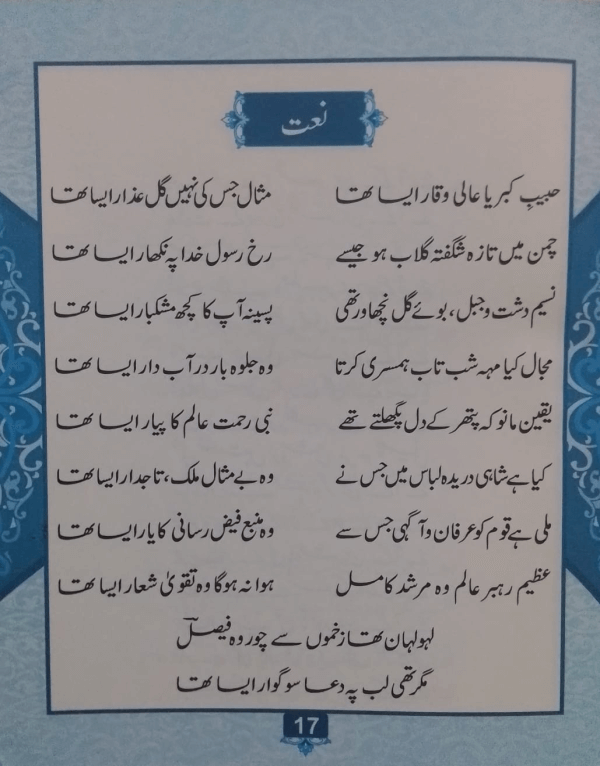 نعت
حبیبِ کبریا عالی وقار ایسا تھا مثال جس کی نہیں گل عذار ایسا تھا
چمن میں تازہ شگفتہ گلاب ہو جیسے رخ رسول خدا پہ نکھار ایسا تھا
نسیم دشت و جبل، بوئے گل نچھاور تھی پسینہ آپ کا کچھ مشکبار ایسا تھا
مجال کیا مہہ شب تاب ہمسری کرتا وہ جلوہ بار در آب دار ایسا تھا
یقین مانو کہ پتھر کے دل پگھلتے تھے نبی رحمت عالم کا پیار ایسا تھا
کیا ہے شاہی دریدہ لباس میں جس نے وہ بے مثال ملک، تاجدار ایسا تھا
ملی ہے قوم کو عرفان و آگہی جس سے وہ منبع فیض رسانی کا یار ایسا تھا
عظیم رہبر عالم وہ مرشد کامل ہوا نہ ہوگا وہ تقویٰ شعار ایسا تھا
لہولہان تھا زخموں سے چور وہ فیصلؔ
مگر تھی لب پہ دعا سوگوار ایسا تھا
17